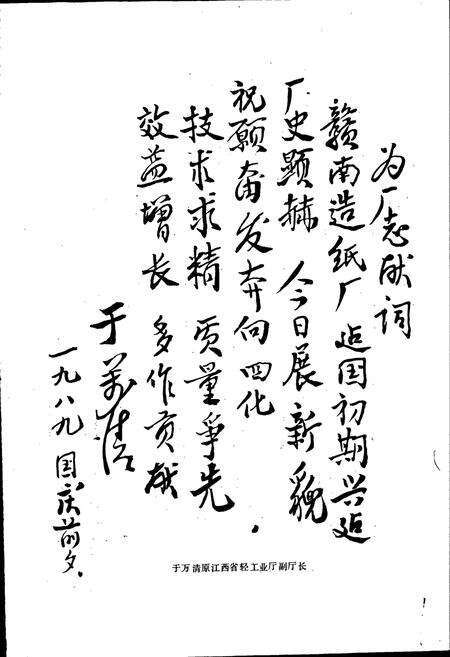 为厂志献词
赣南造纸厂 迠国初期兴迠
厂史顕赫 今日展新貌
祝愿奋发奔向四化
技术求精 质量争先.
效益增长 多作贡献
于萬清
一九八九国庆前夕.
于万清原江西省轻工业厅副厅长